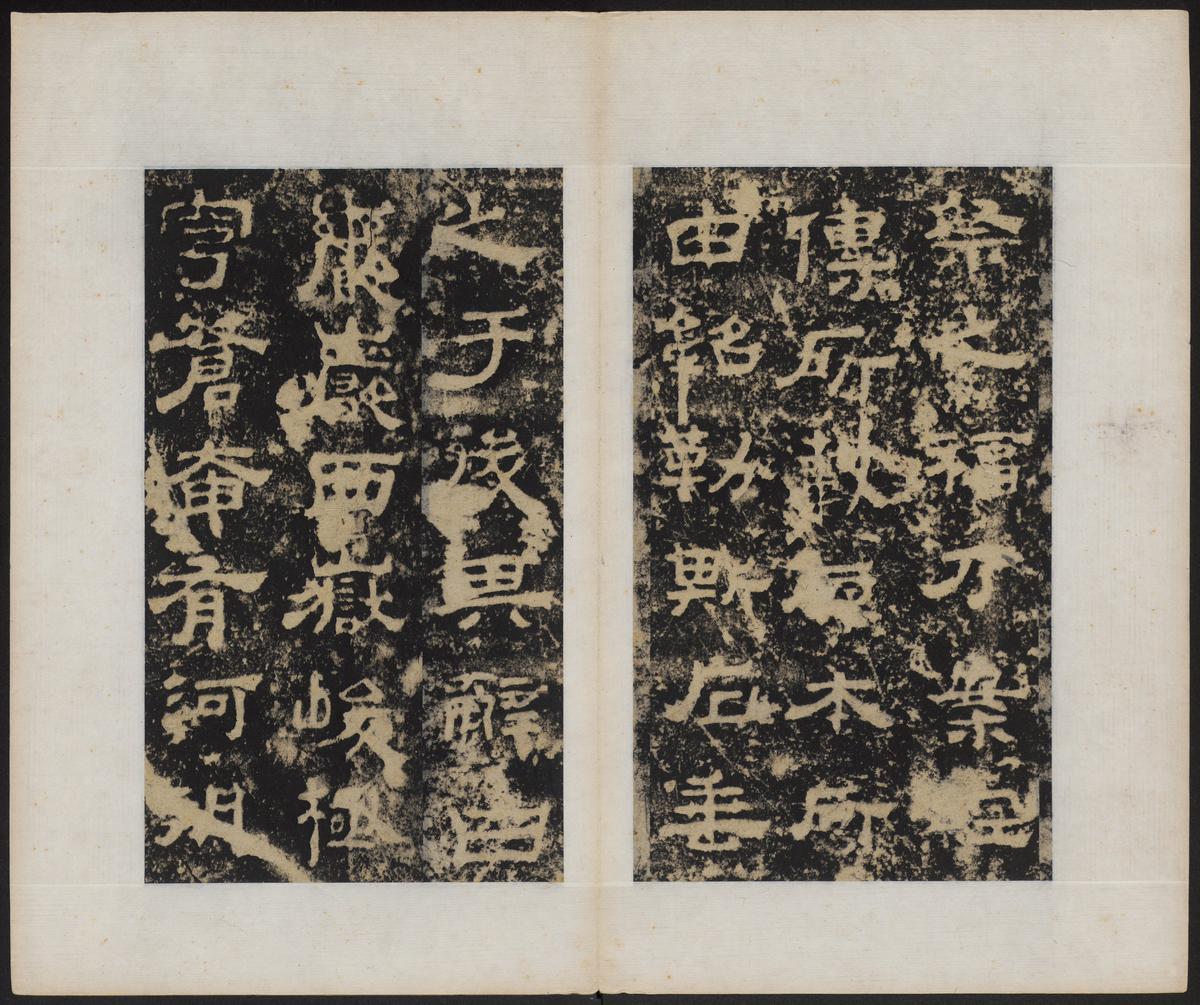 祭之福乃案經
傳所載原本所
由銘勒斯石垂
之于後其辭曰
巖巖西嶽峻極
穹蒼奄有河朔